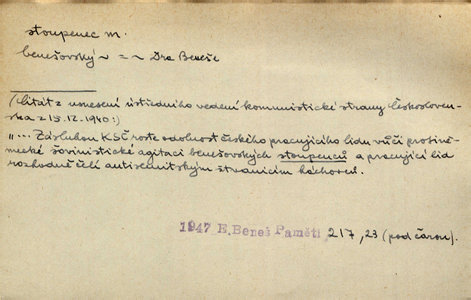 stoupenec m.
benešovský ~ = ~ Dra Beneše
(Citát z usnesení ústředního vedení komunistické strany Českosloven-
ska z 15. 12. 1940:)
"... Zásluhou KSČ roste odolnost českého pracujícího lidu vůči protině-
mecké šovinistické agitaci benešovských stoupenců a pracující lid
rozhodně čelí antisemitským štvanicím háchovců.
1947 E. Beneš Paměti 217, 23 (pod čarou).